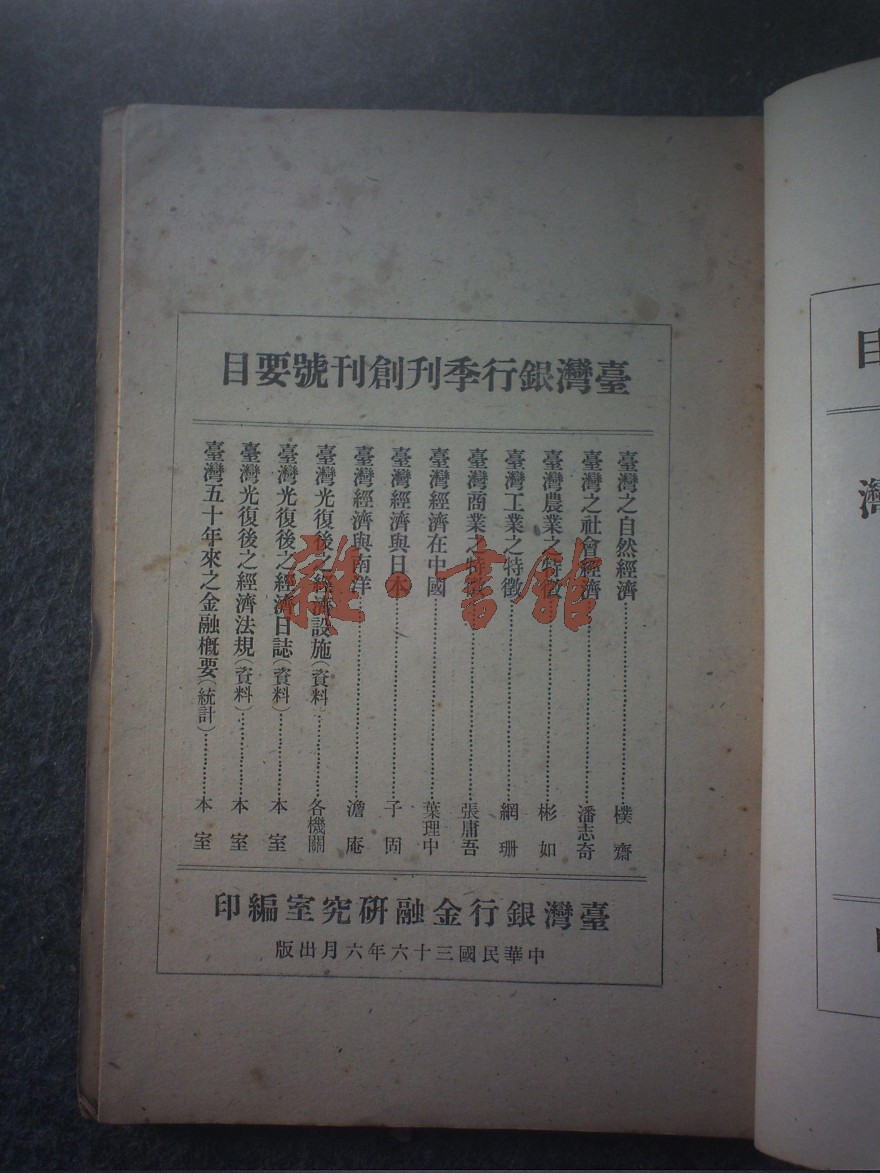 臺灣銀行季刊創刊號要目
臺灣之自然經濟……樸齋
臺灣之社會經濟……潘志奇
臺灣農業之特徵……彬如
臺灣工業之特徵……網珊
臺灣商業之特徵……張庸吾
臺灣經濟在中國……葉理中
臺灣經濟與日本……子固
臺灣經濟與南洋……澹庵
臺灣光復後之經濟設施(資料)……各機關
臺灣光復後之經濟日誌(資料)……本室
臺灣光復後之經濟法規(資料)……本室
臺灣五十年來之金融概要(統計)……本室
臺灣銀行金融研究室編印
中華民國三十六年六月出版
雜·書館
目
灣